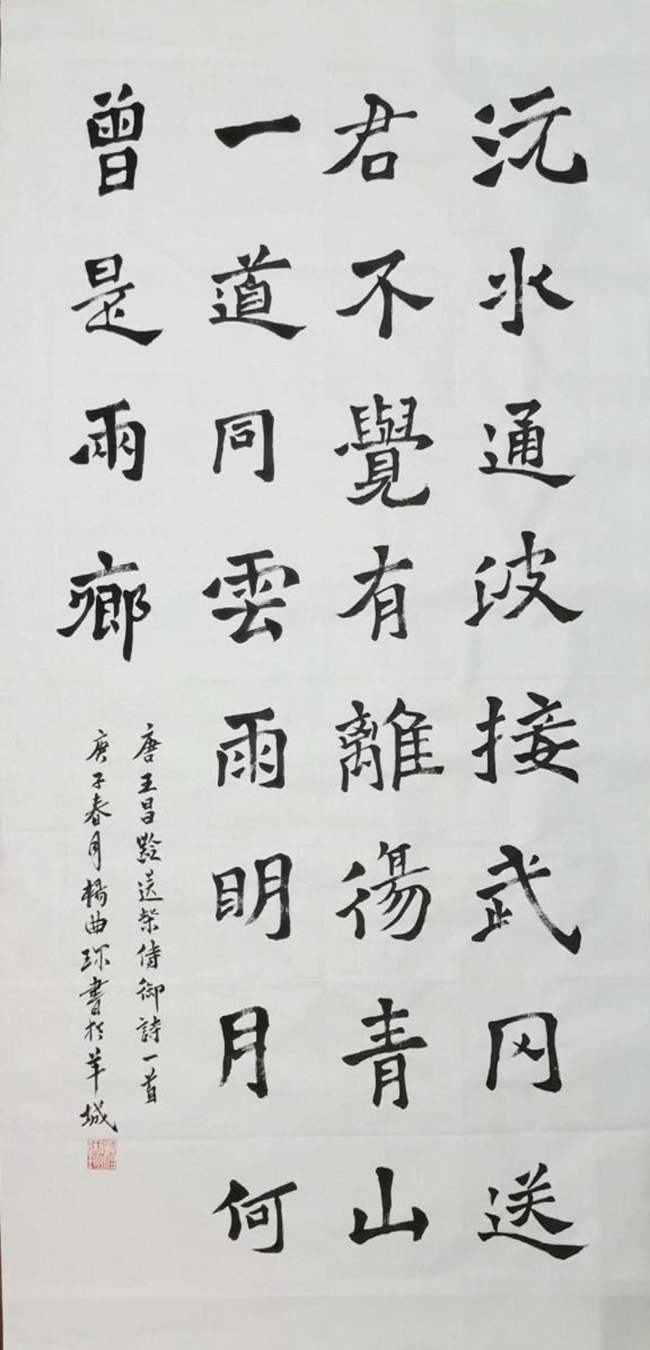 沅水通波接武冈送
君不覺有離傷青山
一道同雲雨明月何
曾是兩鄉
唐王昌齡送柴侍御詩一首
庚子春月楊曲書於羊城